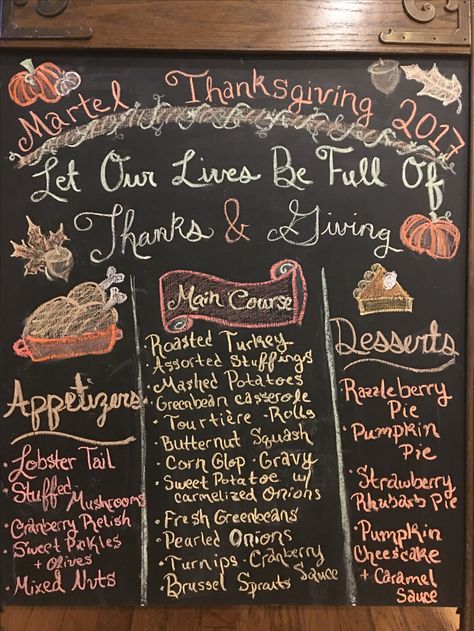 Martel Thanksgiving 2017
Let Our Lives Be Full Of
Thanks & Giving
Appetizers
· Lobster Tail
· Stuffed
Mushrooms
· Cranberry Relish
· Sweet Pickles
+ Olives
· Mixed Nuts
Main Course
Roasted Turkey
· Assorted Stuffings
· Mashed Potatoes
· Greenbean casserole
· Tourtière · Rolls
· Butternut Squash
· Corn Glop · Gravy
· Sweet Potatoe w/
carmelized Onions
· Fresh Greenbeans
· Pearled Onions
· Turnips · Cranberry
Sauce
· Brussel Sprouts
Desserts
· Razzleberry
Pie
· Pumpkin
Pie
· Strawberry
Rhubarb Pie
· Pumpkin
Cheescake
+ Caramel
Sauce